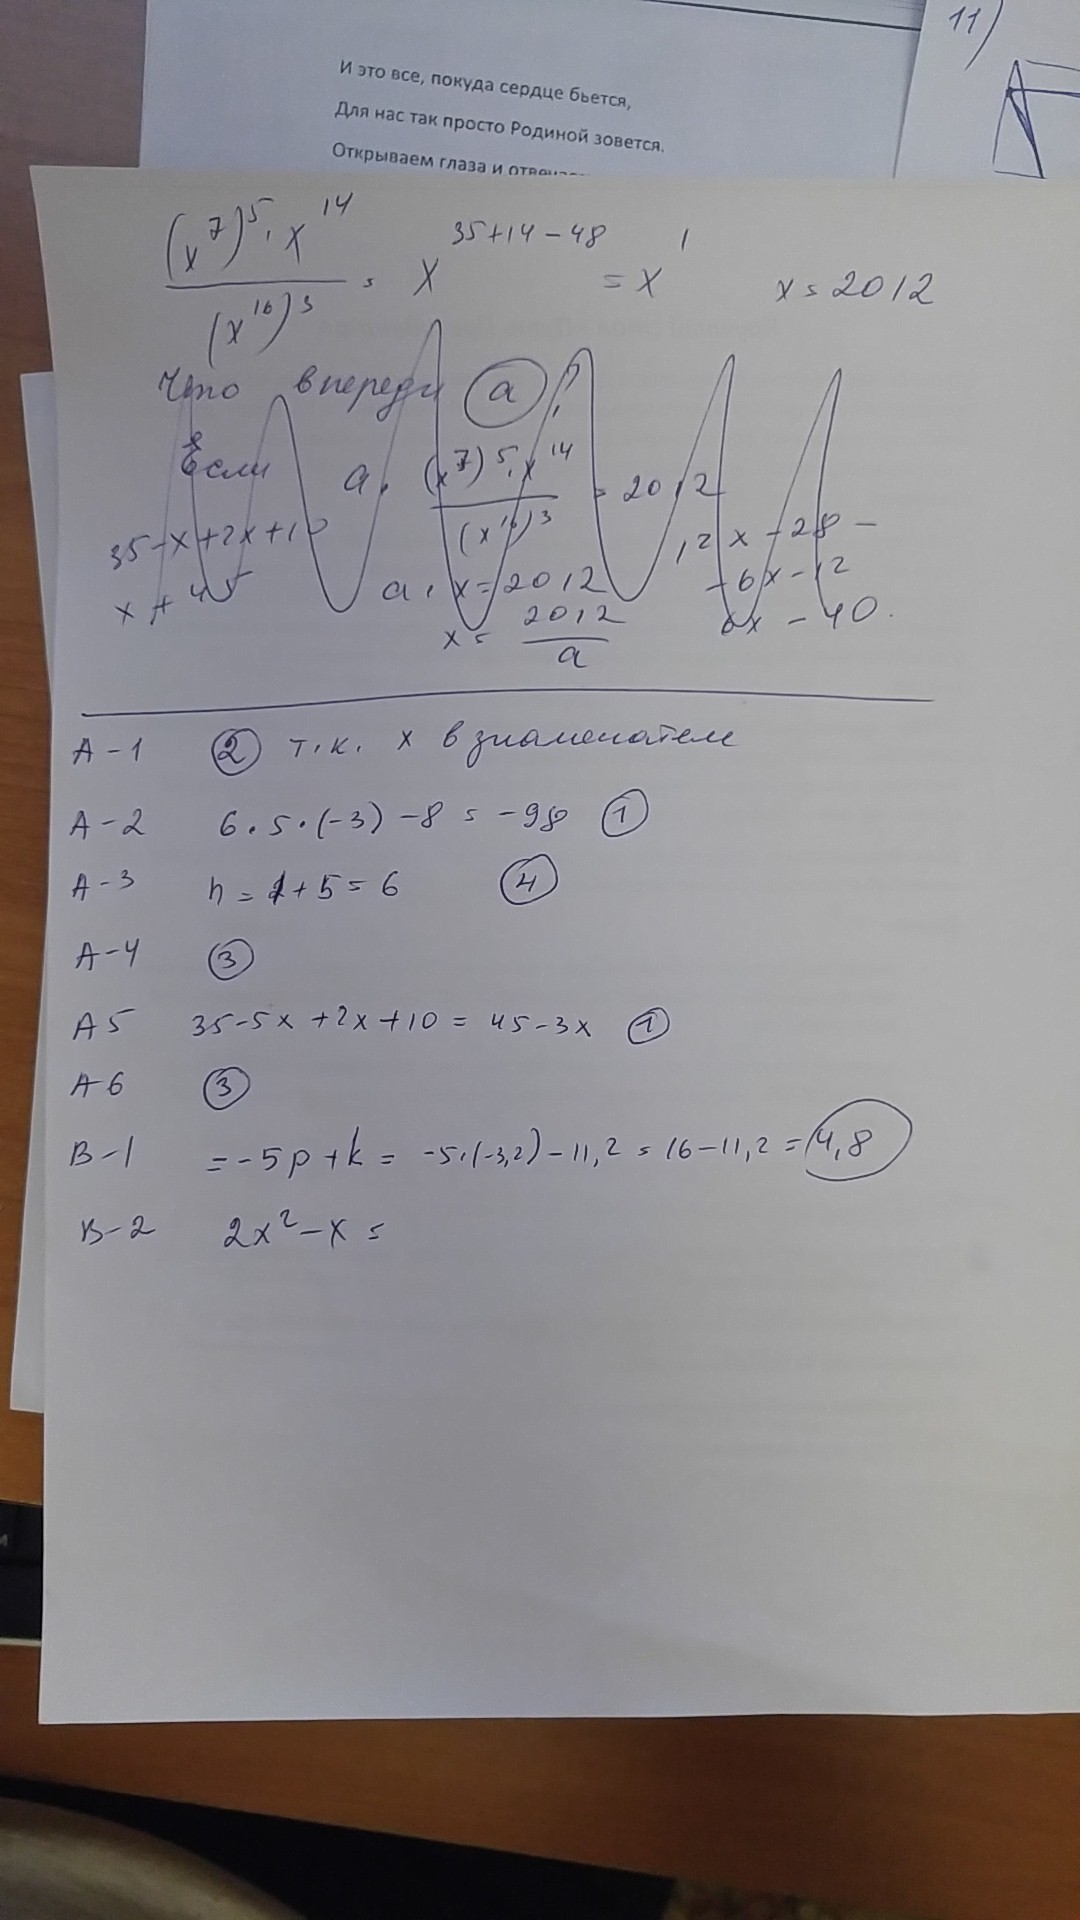 11)
И это все, покуда сердце бьется,
Для нас так просто Родиной зовется.
Открываем глаза и
(x^7)^5 · x^14 / (x^16)^3 = x^(35+14-48) = x^1 x = 2012
Что впереди a ?
Если a · (x^7)^5 · x^14 / (x^16)^3 = 2012
35-x+2x+10
x + 45
a · x = 2012
x = 2012/a
12x - 28 -
- 6x - 12
6x - 40.
A-1 2 т.к. x в знаменателе
A-2 6·5·(-3) -8 = -98 1
A-3 n = 1+5=6 4
A-4 3
A5 35-5x+2x+10 = 45-3x 1
A-6 3
B-1 = -5p+k = -5·(-3,2)-11,2 = 16-11,2 = 4,8
B-2 2x² - x =